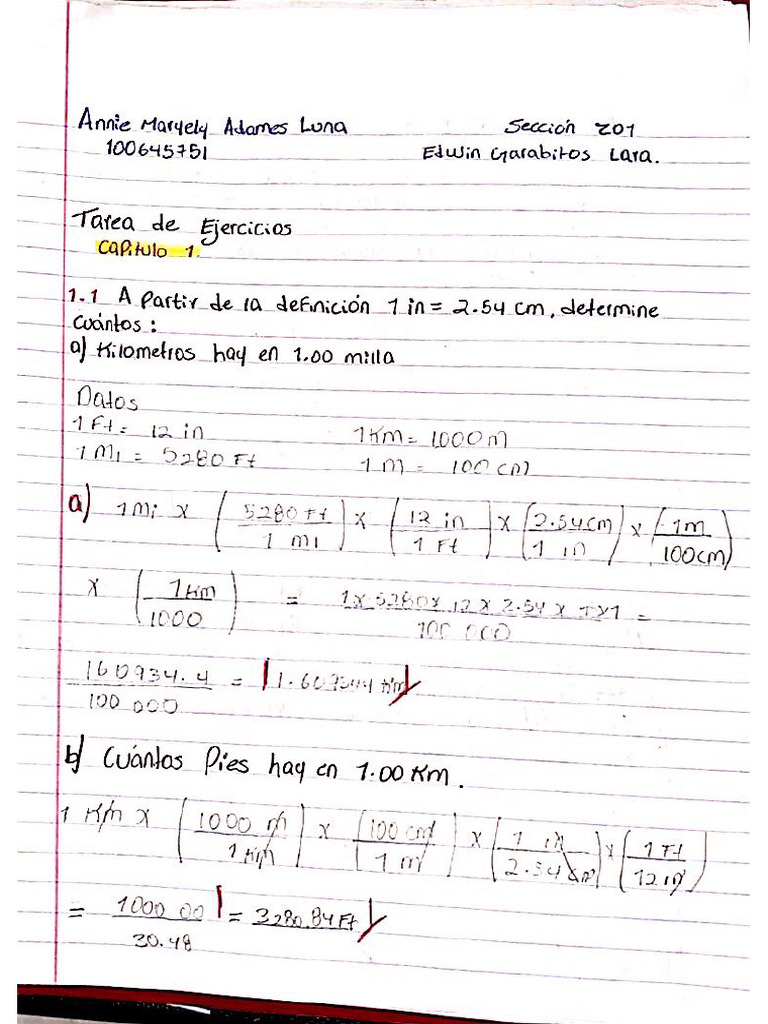 Annie Maryely Adames Luna Sección 201
100645751 Edwin Garabitos Lara.
Tarea de Ejercicios
Capitulo 1.
1.1 A partir de la definición 1 in = 2.54 cm, determine
cuántos:
a) Kilometros hay en 1.00 milla
Datos
1 Ft = 12 in 1 Km = 1000 m
1 Mi = 5280 Ft 1 m = 100 cm
a) 1 mi x (5280 Ft / 1 mi) x (12 in / 1 Ft) x (2.54 cm / 1 in) x (1m / 100cm)
x (1 Km / 1000) = 1 x 5280 x 12 x 2.54 x 1 x 1 / 100 000 =
160934.4 / 100 000 = 1.609344 Km
b) Cuántos Pies hay en 1.00 Km.
1 Km x (1000 m / 1 Km) x (100 cm / 1 m) x (1 in / 2.54 cm) x (1 Ft / 12 in)
= 1000 00 / 30.48 = 3280.84 Ft